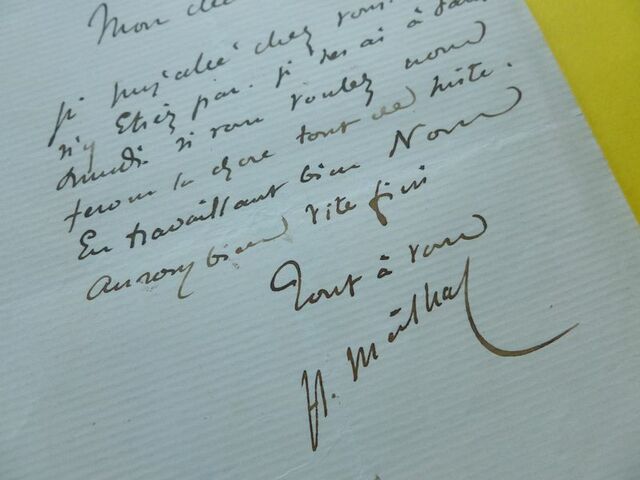 Mon
je suis allé chez vous.
n'y Etiez pas. je serai à
Lundi si vous voulez nous
ferons la chose tout de suite.
En travaillant bien Nous
aurons bien vite fini
Tout à vous
H. Meilhac